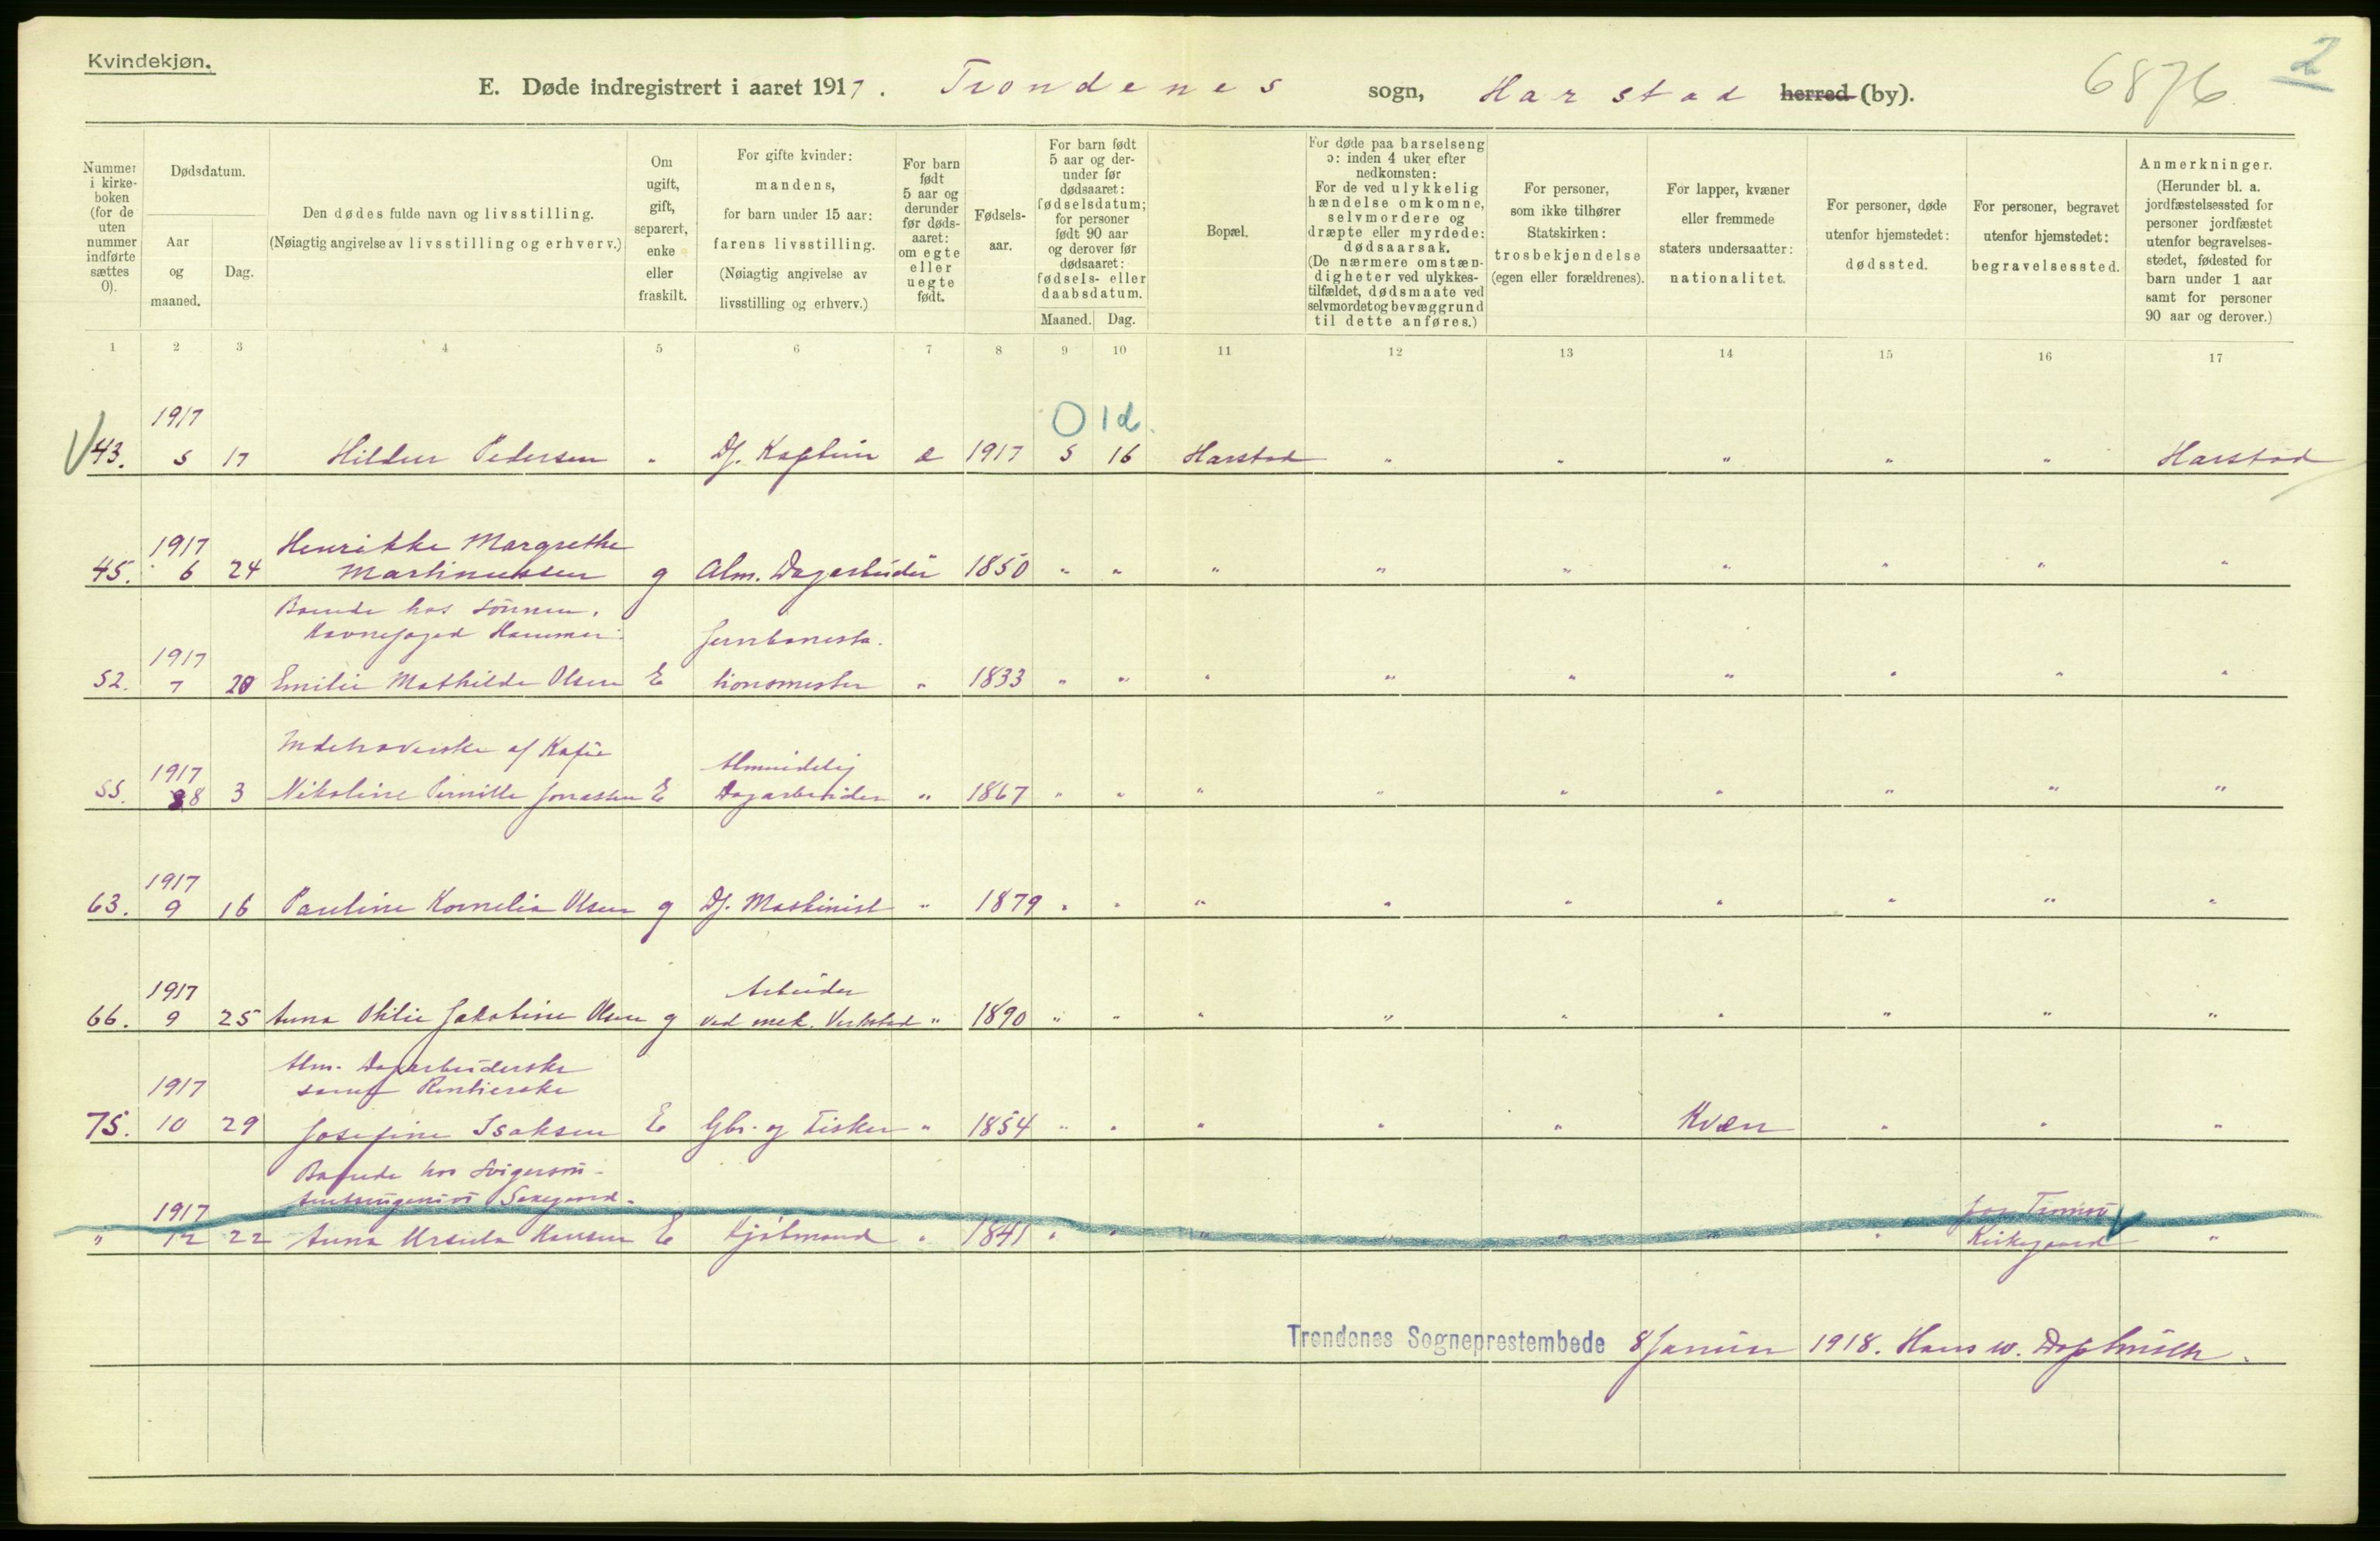 Kvindekjøn.
E. Døde indregistrert i aaret 1917. Trondenes sogn, Harstad herred (by). 6876 2
Nummer i kirkeboken (for de uten nummer indførte sættes 0).
Dødsdatum.
Aar og maaned.
Dag.
Den dødes fulde navn og livsstilling.
(Nøiagtig angivelse av livsstilling og erhverv.)
Om ugift, gift, separert, enke eller fraskilt.
For gifte kvinder: mandens, for barn under 15 aar: farens livsstilling. (Nøiagtig angivelse av livsstilling og erhverv.)
For barn født 5 aar og derunder før dødsaaret: om egte eller uegte født.
Fødselsaar.
For barn født 5 aar og derunder før dødsaaret: fødselsdatum; for personer født 90 aar og derover før dødsaaret: fødsels- eller daabsdatum.
Maaned. Dag.
Bopæl.
For døde paa barselseng ɔ: inden 4 uker efter nedkomsten: For de ved ulykkelig hændelse omkomne, selvmordere og dræpte eller myrdede: dødsaarsak. (De nærmere omstændigheter ved ulykkestilfældet, dødsmaate ved selvmordet og bevæggrund til dette anføres.)
For personer, som ikke tilhører Statskirken: trosbekjendelse (egen eller forældrenes).
For lapper, kvæner eller fremmede staters undersaatter: nationalitet.
For personer, døde utenfor hjemstedet: dødssted.
For personer, begravet utenfor hjemstedet: begravelsessted.
Anmerkninger. (Herunder bl. a. jordfæstelsessted for personer jordfæstet utenfor begravelsesstedet, fødested for barn under 1 aar samt for personer 90 aar og derover.)
1 2 3 4 5 6 7 8 9 10 11 12 13 14 15 16 17
1917 0 1d.
43. 5 17 Hildur Pedersen " Df. Kaptein e 1917 5 16 Harstad " " " " " Harstad
1917 Henrikke Margrethe
45. 6 24 Martinussen g Alm. Dagarbeider 1850 " " " " " " " " "
Boende hos Sønnen,
Havnefoged Hammer: Jernbanesta
1917
52. 7 28 Emilie Mathilde Olsen E tionsmester " 1833 " " " " " " " " "
Indehaverske af Kafé Almindelig
1917
55. 8 3 Nikoline Pernille Jonassen E Dagarbeider " 1867 " " " " " " " " "
1917
63. 9 16 Pauline Kornelia Olsen g Df. Maskinist " 1879 " " " " " " " " "
1917 Arbeider
66. 9 25 Anna Otilie Jakobine Olsen g ved mek. Verksted " 1890 " " " " " " " " "
Alm. Dagarbeiderske
1917 samt Rentierske
75. 10 29 Josefine Isaksen E Gbr. og Fisker " 1854 " " " " " Kvæn " " "
Boende hos Svigersøn
1917 Amtsingeniør
" 12 22 Anna Ursula Hansen E Kjøbmand " 1841 " " " " " " " Tromsø Kirkegaard "
Trondenes Sogneprestembede 8 Januar 1918. Hans W.